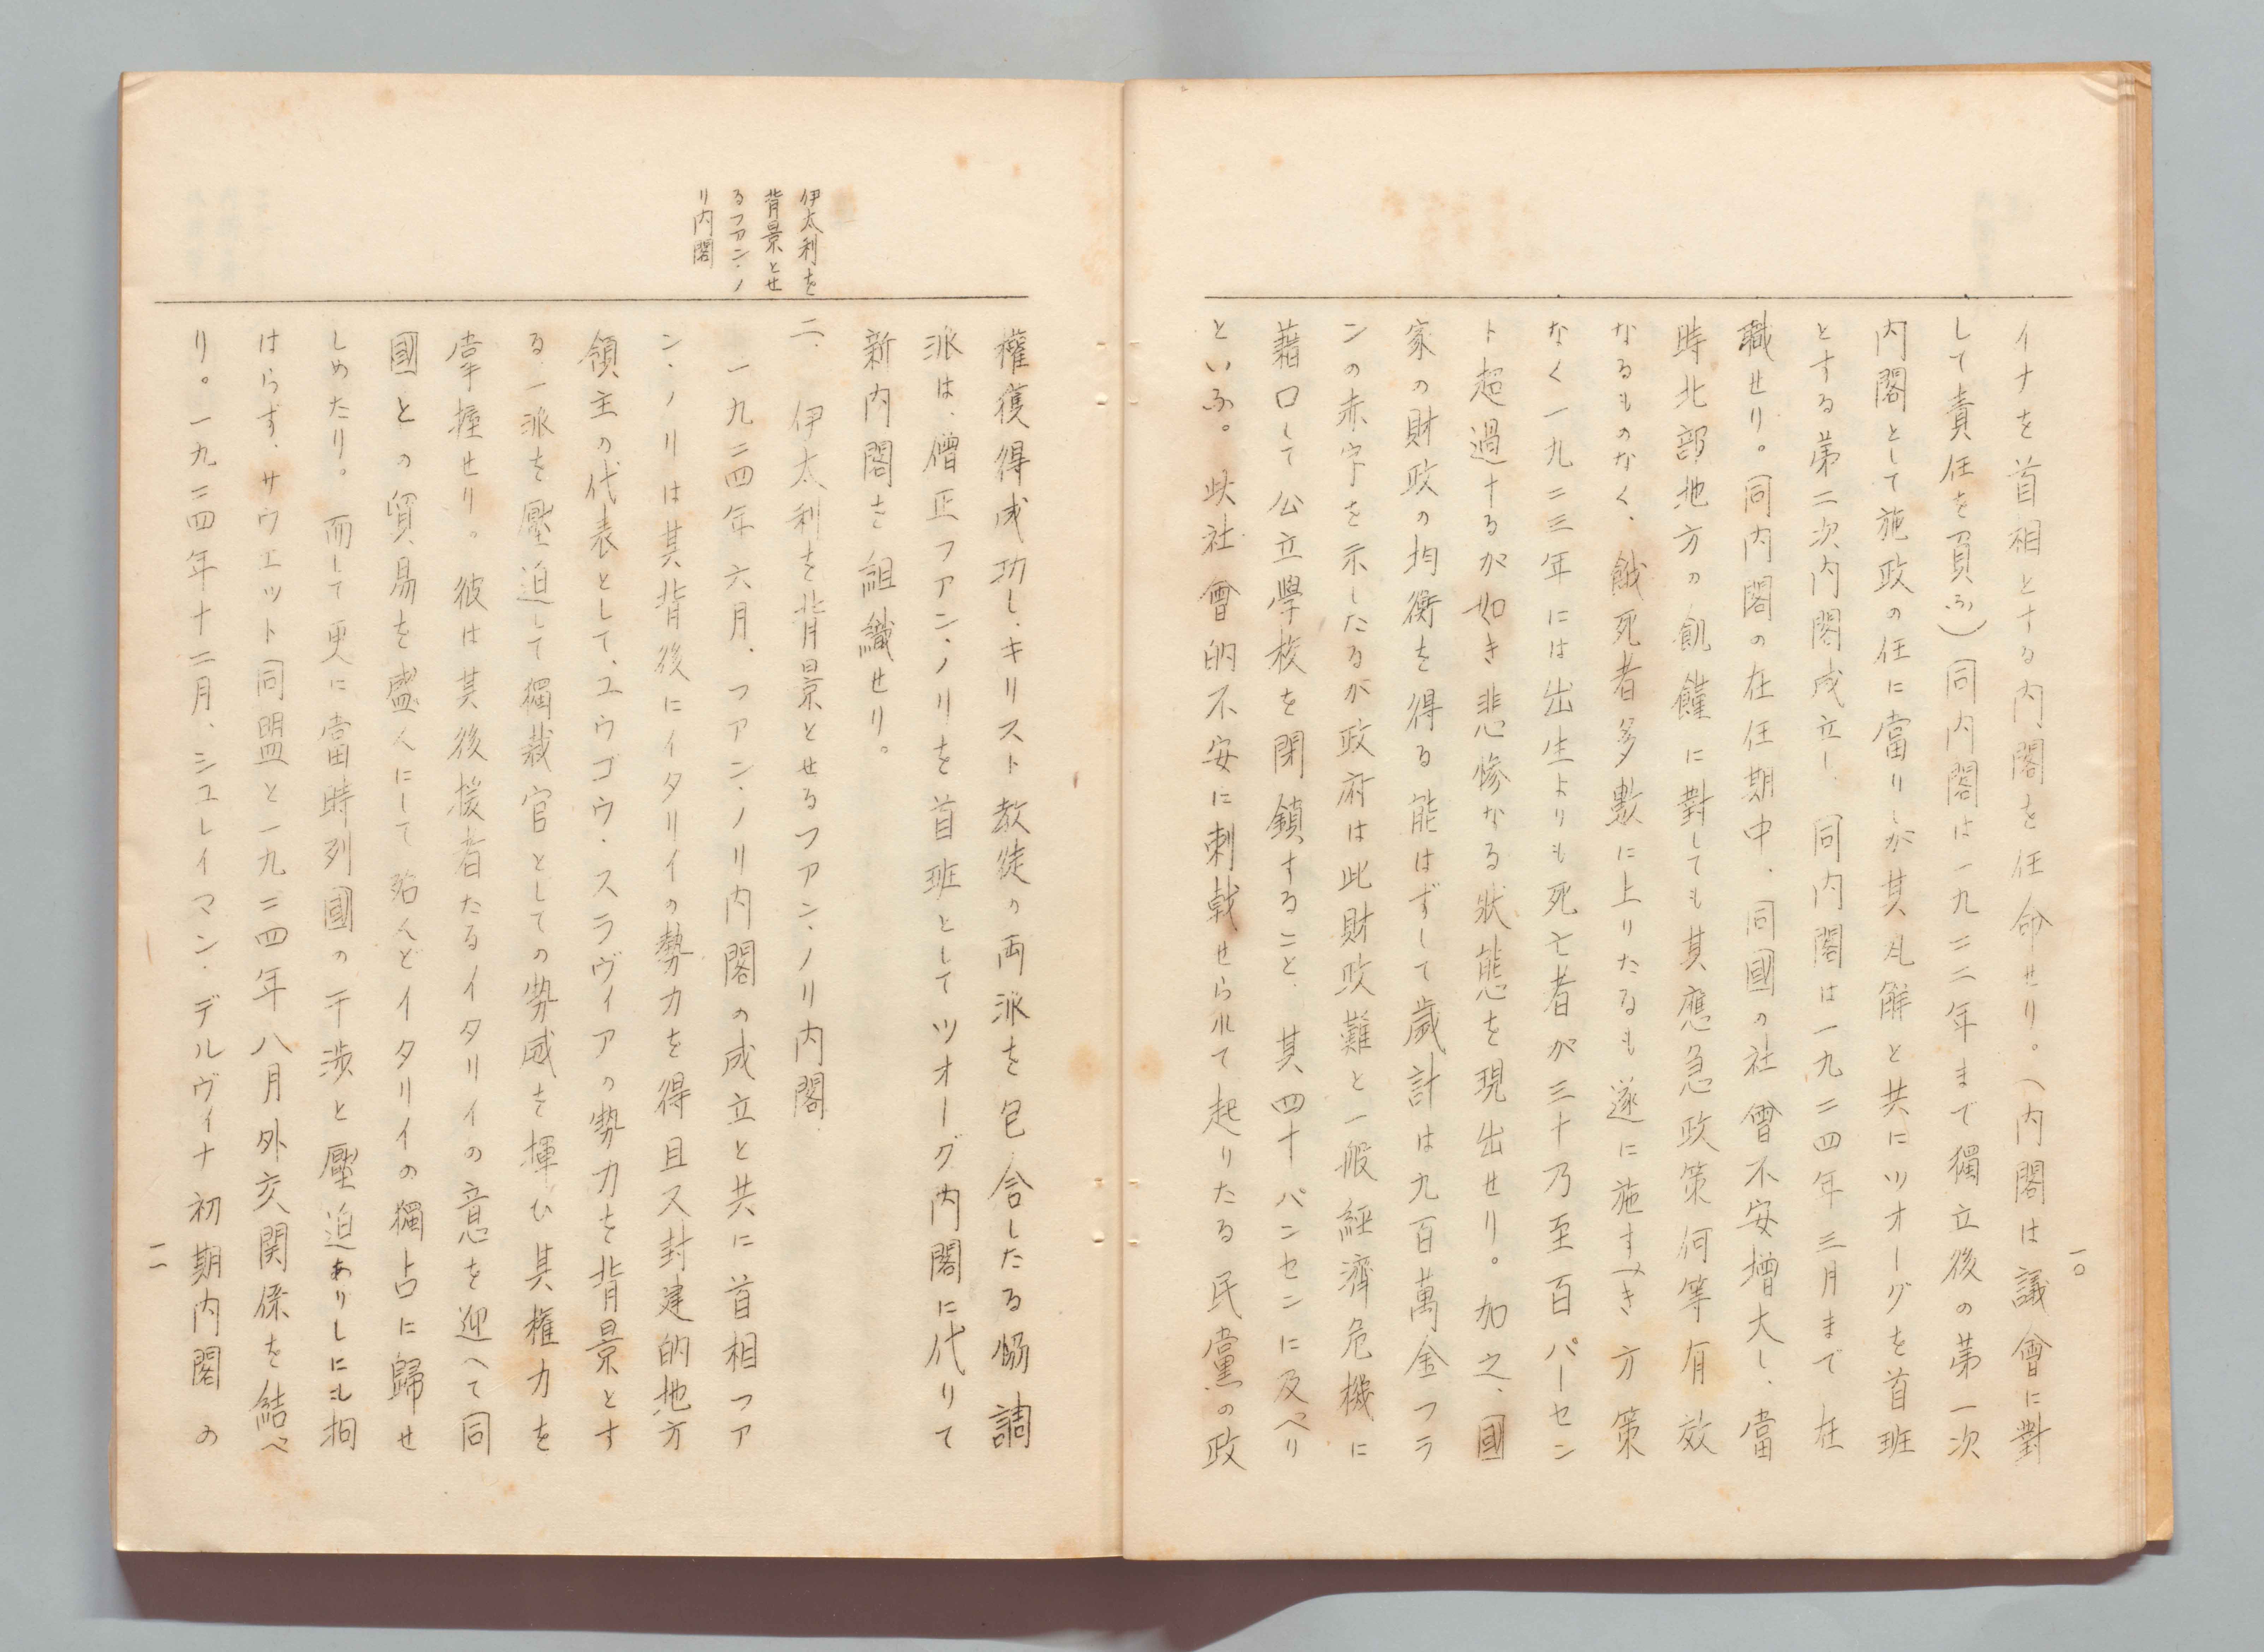 一〇
イナを首相とする内閣を任命せり。(内閣は議會に對
して責任を負ふ)同内閣は一九二二年まで獨立後の第一次
内閣として施政の任に當りしが其瓦解と共にツオーグを首班
とする第二次内閣成立し、同内閣は一九二四年三月まで在
職せり。同内閣の在任期中、同國の社會不安增大し、當
時北部地方の飢饉に對しても其應急政策何等有效
なるものなく、餓死者多數に上りたるも遂に施すべき方策
なく一九二三年には出生よりも死亡者が三十乃至百パーセン
ト超過するが如き悲惨なる狀態を現出せり。加之、國
家の財政の均衡を得る能はずして歲計は九百萬金フラ
ンの赤字を示したるが政府は此財政難と一般經濟危機に
藉口して公立學校を閉鎖すること、其四十パンセンに及べり
といふ。此社會的不安に刺戟せられて起りたる民黨の政
伊太利を
背景とせ
るフアン・ノ
リ内閣
權獲得成功し、キリスト教徒の両派を包含したる協調
派は、僧正フアン・ノリを首班としてツオーグ内閣に代りて
新内閣を組織せり。
二、伊太利を背景とせるフアン・ノリ内閣
一九二四年六月、フアン・ノリ内閣の成立と共に首相フア
ン・ノリは其背後にイタリイの勢力を得且又封建的地方
領主の代表として、ユウゴウ・スラヴィアの勢力を背景とす
る一派を壓迫して獨裁官としての勢威を揮ひ其權力を
掌握せり。彼は其後援者たるイタリイの意を迎へて同
國との貿易を盛んにして殆んどイタリイの獨占に歸せ
しめたり。而して更に當時列國の干渉と壓迫ありしにも拘
はらず、サウエット同盟と一九二四年八月外交関係を結べ
り。一九二四年十二月、シユレイマン・デルヴィナ初期内閣の
一一